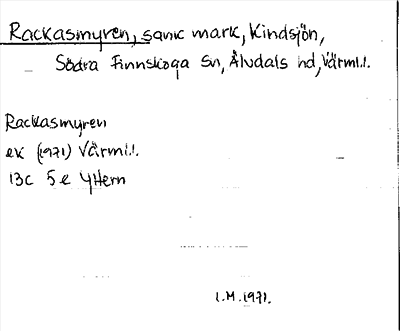 Rackasmyren, sank mark, Kindsjön,
Södra Finnskoga sn, Älvdals hd, Värml.
Rackasmyren
ek (1971) Värml.
13C 5e Ytern
I.M. 1971.